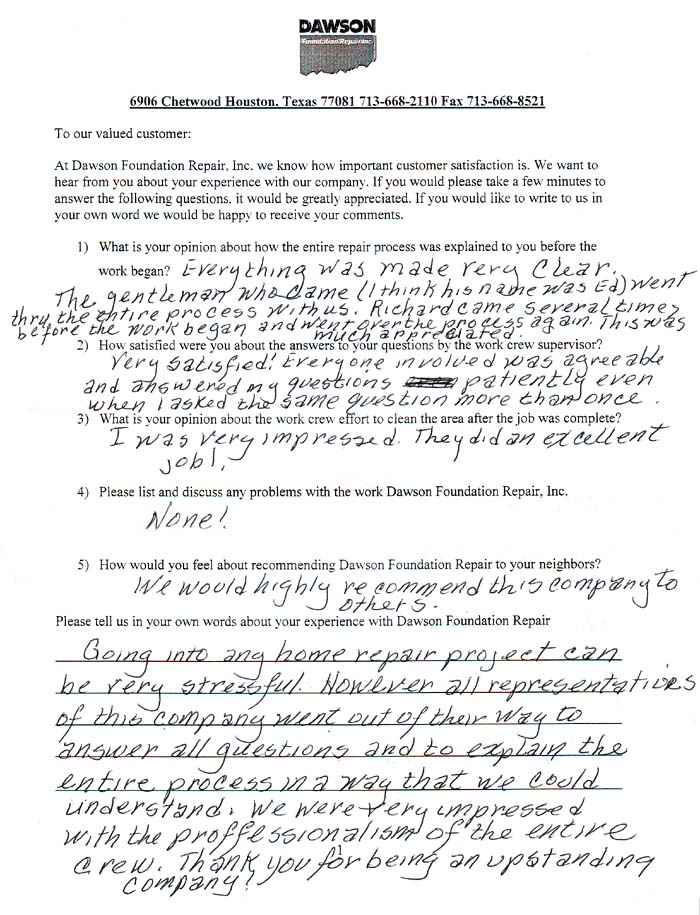 DAWSON
Foundation Repair Inc.
6906 Chetwood Houston, Texas 77081 713-668-2110 Fax 713-668-8521
To our valued customer:
At Dawson Foundation Repair, Inc. we know how important customer satisfaction is. We want to
hear from you about your experience with our company. If you would please take a few minutes to
answer the following questions, it would be greatly appreciated. If you would like to write to us in
your own word we would be happy to receive your comments.
1) What is your opinion about how the entire repair process was explained to you before the
work began? Everything was made very clear.
The gentleman who came (I think his name was Ed) went
thru the entire process with us. Richard came several times
before the work began and went over the process again. This was
much appreciated.
2) How satisfied were you about the answers to your questions by the work crew supervisor?
Very satisfied! Everyone involved was agreeable
and answered my questions patiently even
when I asked the same question more than once.
3) What is your opinion about the work crew effort to clean the area after the job was complete?
I was very impressed. They did an excellent
job!
4) Please list and discuss any problems with the work Dawson Foundation Repair, Inc.
None!
5) How would you feel about recommending Dawson Foundation Repair to your neighbors?
We would highly recommend this company to
others.
Please tell us in your own words about your experience with Dawson Foundation Repair
Going into any home repair project can
be very stressful. However all representatives
of this company went out of their way to
answer all questions and to explain the
entire process in a way that we could
understand. We were very impressed
with the proffessionalism of the entire
crew. Thank you for being an upstanding
company!